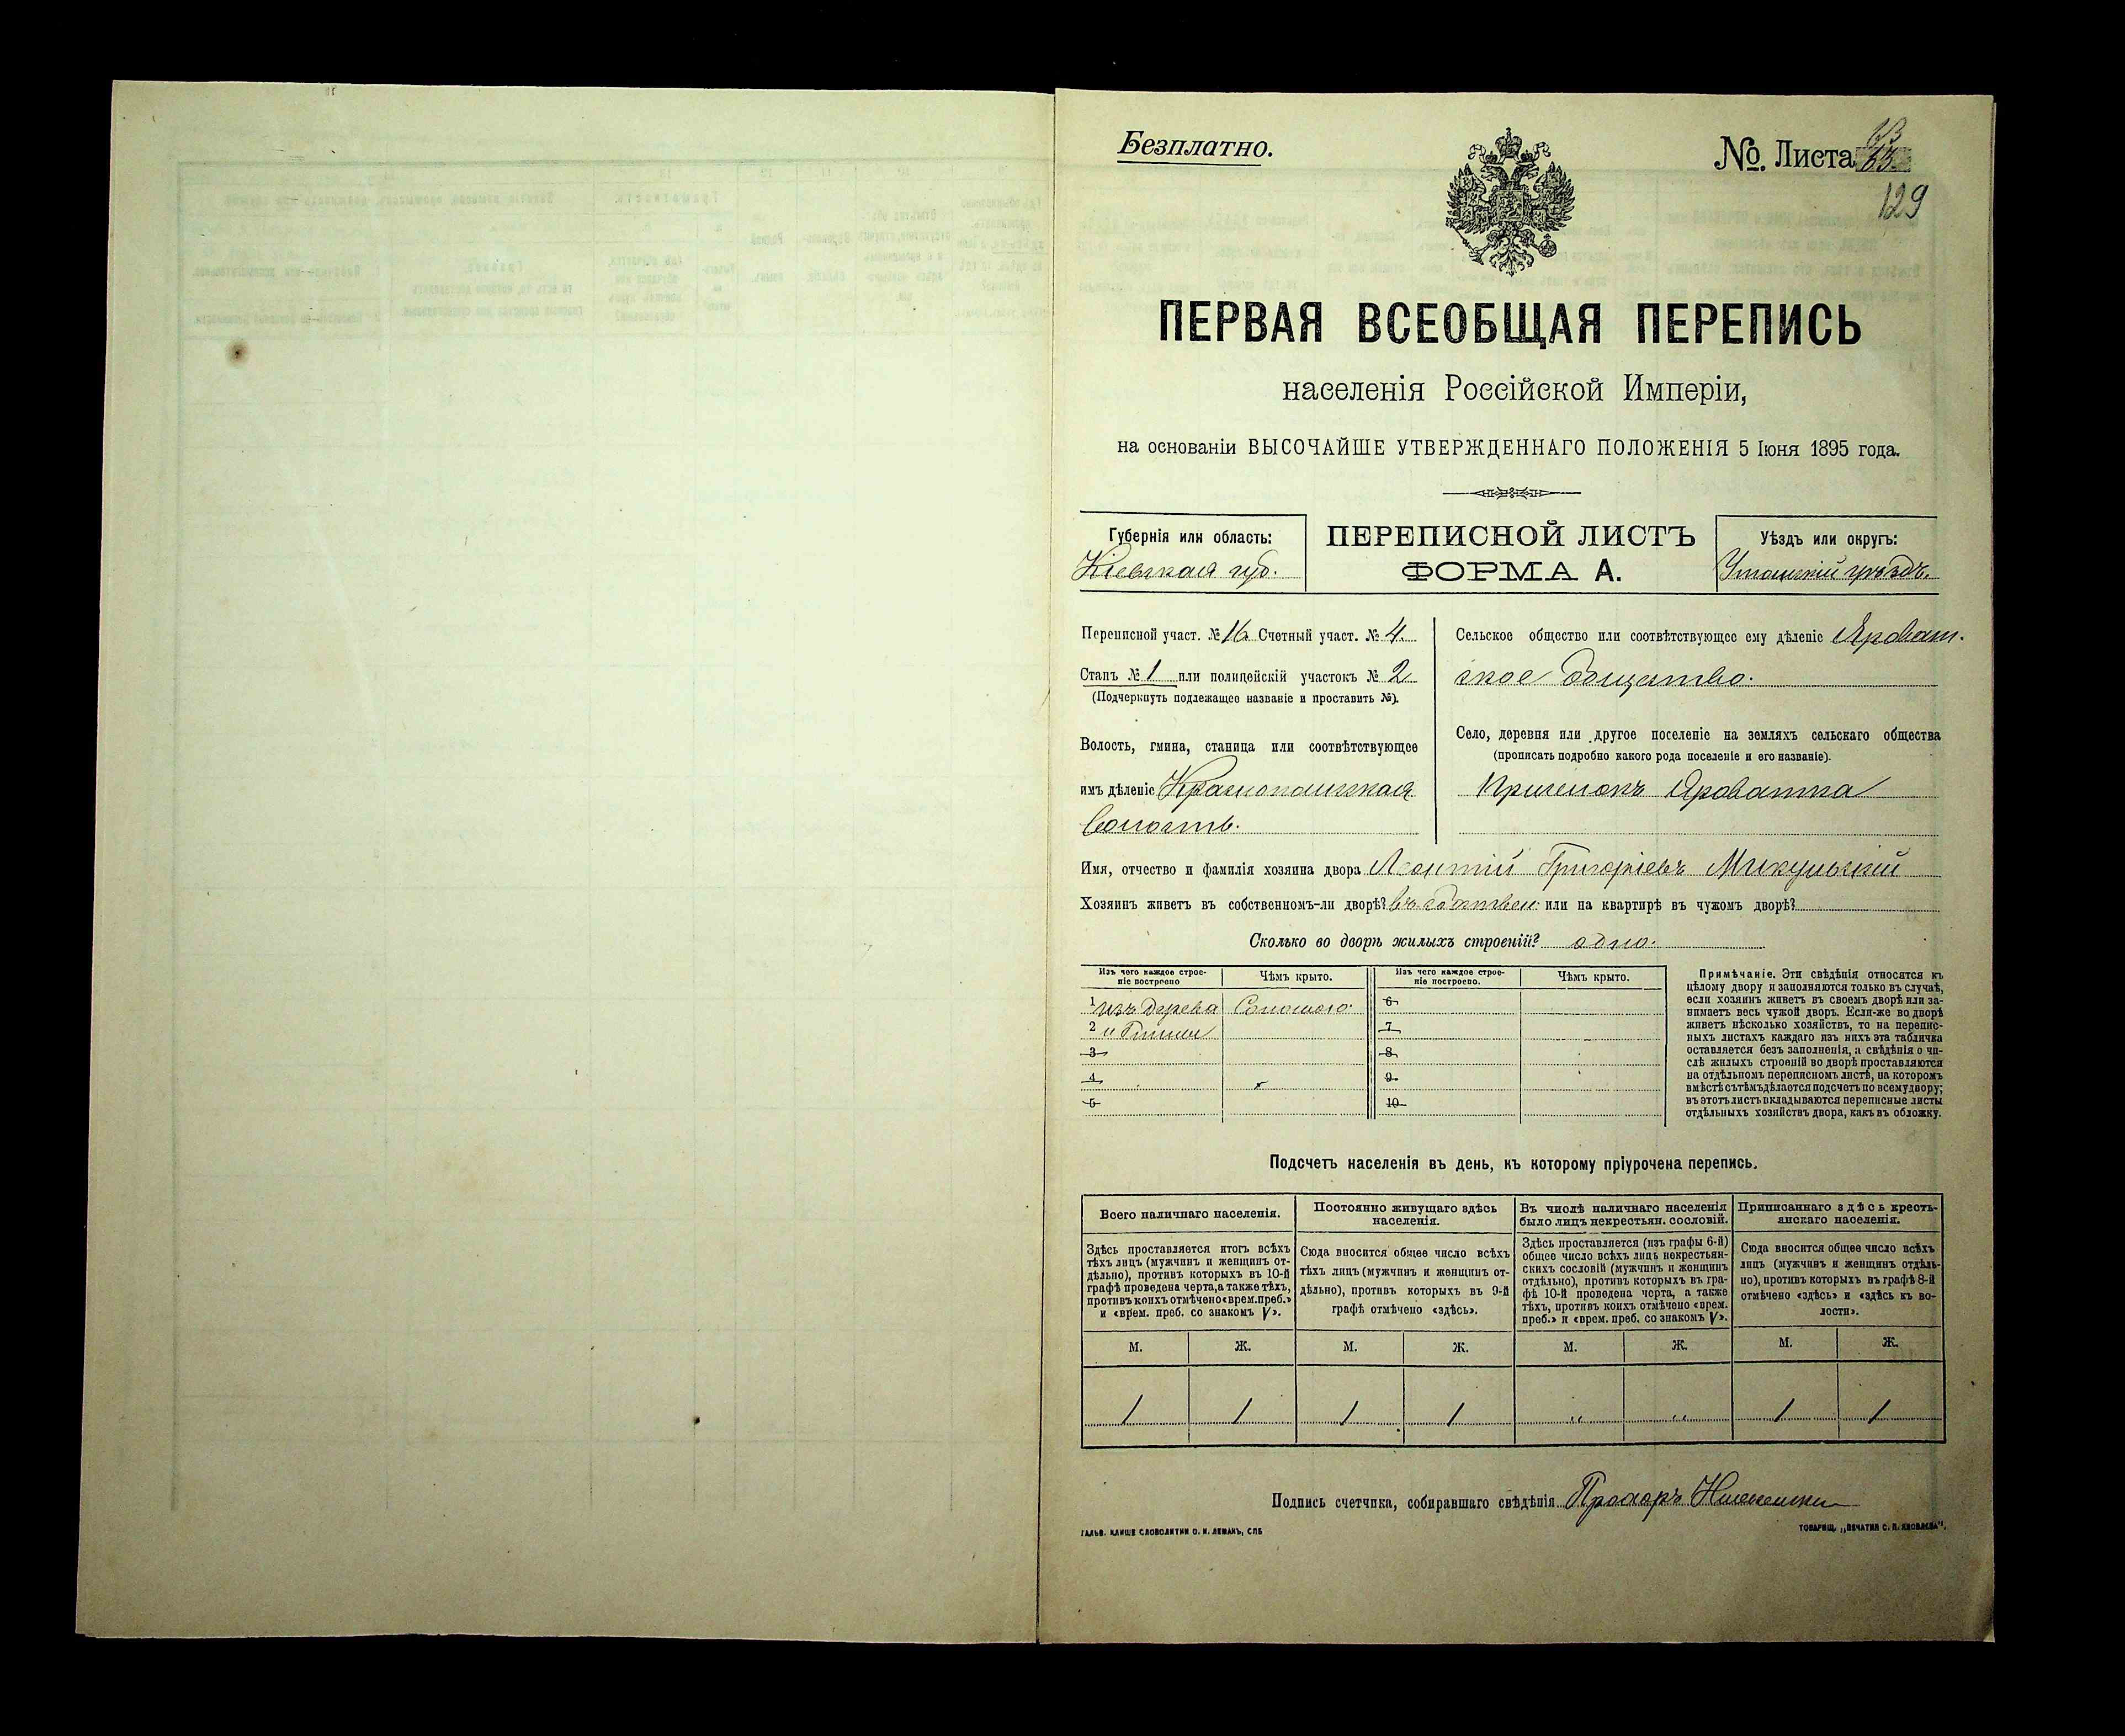 Безплатно.
№. Листа 63
63
129
ПЕРВАЯ ВСЕОБЩАЯ ПЕРЕПИСЬ
населенія Россійской Имперіи,
на основаніи ВЫСОЧАЙШЕ УТВЕРЖДЕННАГО ПОЛОЖЕНІЯ 5 Іюня 1895 года.
Губернія или область:
Кіевская губ.
ПЕРЕПИСНОЙ ЛИСТЪ
ФОРМА А.
Уѣздъ или округъ:
Уманскій уѣздъ.
Переписной участ. № 16 Счетный участ. № 4.
Станъ № 1 или полицейскій участокъ № 2
(Подчеркнуть подлежащее названіе и проставить №).
Волость, гмина, станица или соотвѣтствующее
имъ дѣленіе Краснопольская
Волость.
Сельское общество или соотвѣтствующее ему дѣленіе Яроват-
ское Общество.
Село, деревня или другое поселеніе на земляхъ сельскаго общества
(прописать подробно какого рода поселеніе и его названіе).
Яроватка
Имя, отчество и фамилія хозяина двора Леонтій Григоріевъ Микульскій
Хозяинъ живетъ въ собственномъ-ли дворѣ? въ собствен: или на квартирѣ въ чужомъ дворѣ?
Сколько во дворѣ жилыхъ строеній? одно.
Изъ чего каждое строе-
ніе построено
Чѣмъ крыто.
Изъ чего каждое строе-
ніе построено.
Чѣмъ крыто.
1 изъ дерева Соломою.
2 и Глины
3
4
5
6
7
8
9
10
Примѣчаніе. Эти свѣдѣнія относятся къ
цѣлому двору и заполняются только въ случаѣ,
если хозяинъ живетъ въ своемъ дворѣ или за-
нимаетъ весь чужой дворъ. Если-же во дворѣ
живетъ нѣсколько хозяйствъ, то на перепис-
ныхъ листахъ каждаго изъ нихъ эта табличка
оставляется безъ заполненія, а свѣдѣнія о чи-
слѣ жилыхъ строеній во дворѣ проставляются
на отдѣльномъ переписномъ листѣ, на которомъ
вмѣстѣ съ тѣмъ дѣлается подсчетъ по всему двору;
въ этотъ листъ вкладываются переписные листы
отдѣльныхъ хозяйствъ двора, какъ въ обложку.
Подсчетъ населенія въ день, къ которому пріурочена перепись.
Всего наличнаго населенія.
Здѣсь проставляется итогъ всѣхъ
тѣхъ лицъ (мужчинъ и женщинъ от-
дѣльно), противъ которыхъ въ 10-й
графѣ проведена черта, а также тѣхъ,
противъ коихъ отмѣчено «врем. преб.»
и «врем. преб. со знакомъ V».
Постоянно живущаго здѣсь
населенія.
Сюда вносится общее число всѣхъ
тѣхъ лицъ (мужчинъ и женщинъ от-
дѣльно), противъ которыхъ въ 9-й
графѣ отмѣчено «здѣсь».
Въ числѣ наличнаго населенія
было лицъ некрестьян. сословій.
Здѣсь проставляется (изъ графы 6-й)
общее число всѣхъ лицъ некрестьян-
скихъ сословій (мужчинъ и женщинъ
отдѣльно), противъ которыхъ въ гра-
фѣ 10-й проведена черта, а также
тѣхъ, противъ коихъ отмѣчено «врем.
преб.» и «врем. преб. со знакомъ V».
Приписаннаго здѣсь кресть-
янскаго населенія.
Сюда вносится общее число всѣхъ
лицъ (мужчинъ и женщинъ отдѣль-
но), противъ которыхъ въ графѣ 8-й
отмѣчено «здѣсь» и «здѣсь къ во-
лости».
М. Ж. М. Ж. М. Ж. М. Ж.
1 1 1 1 " " 1 1
Подпись счетчика, собиравшаго свѣдѣнія Прохоръ
ГАЛЬВ. КЛИШЕ СЛОВОЛИТНИ О. И. ЛЕМАНЪ, СПБ
ТОВАРИЩ. „ПЕЧАТНЯ С. П. ЯКОВЛЕВА".